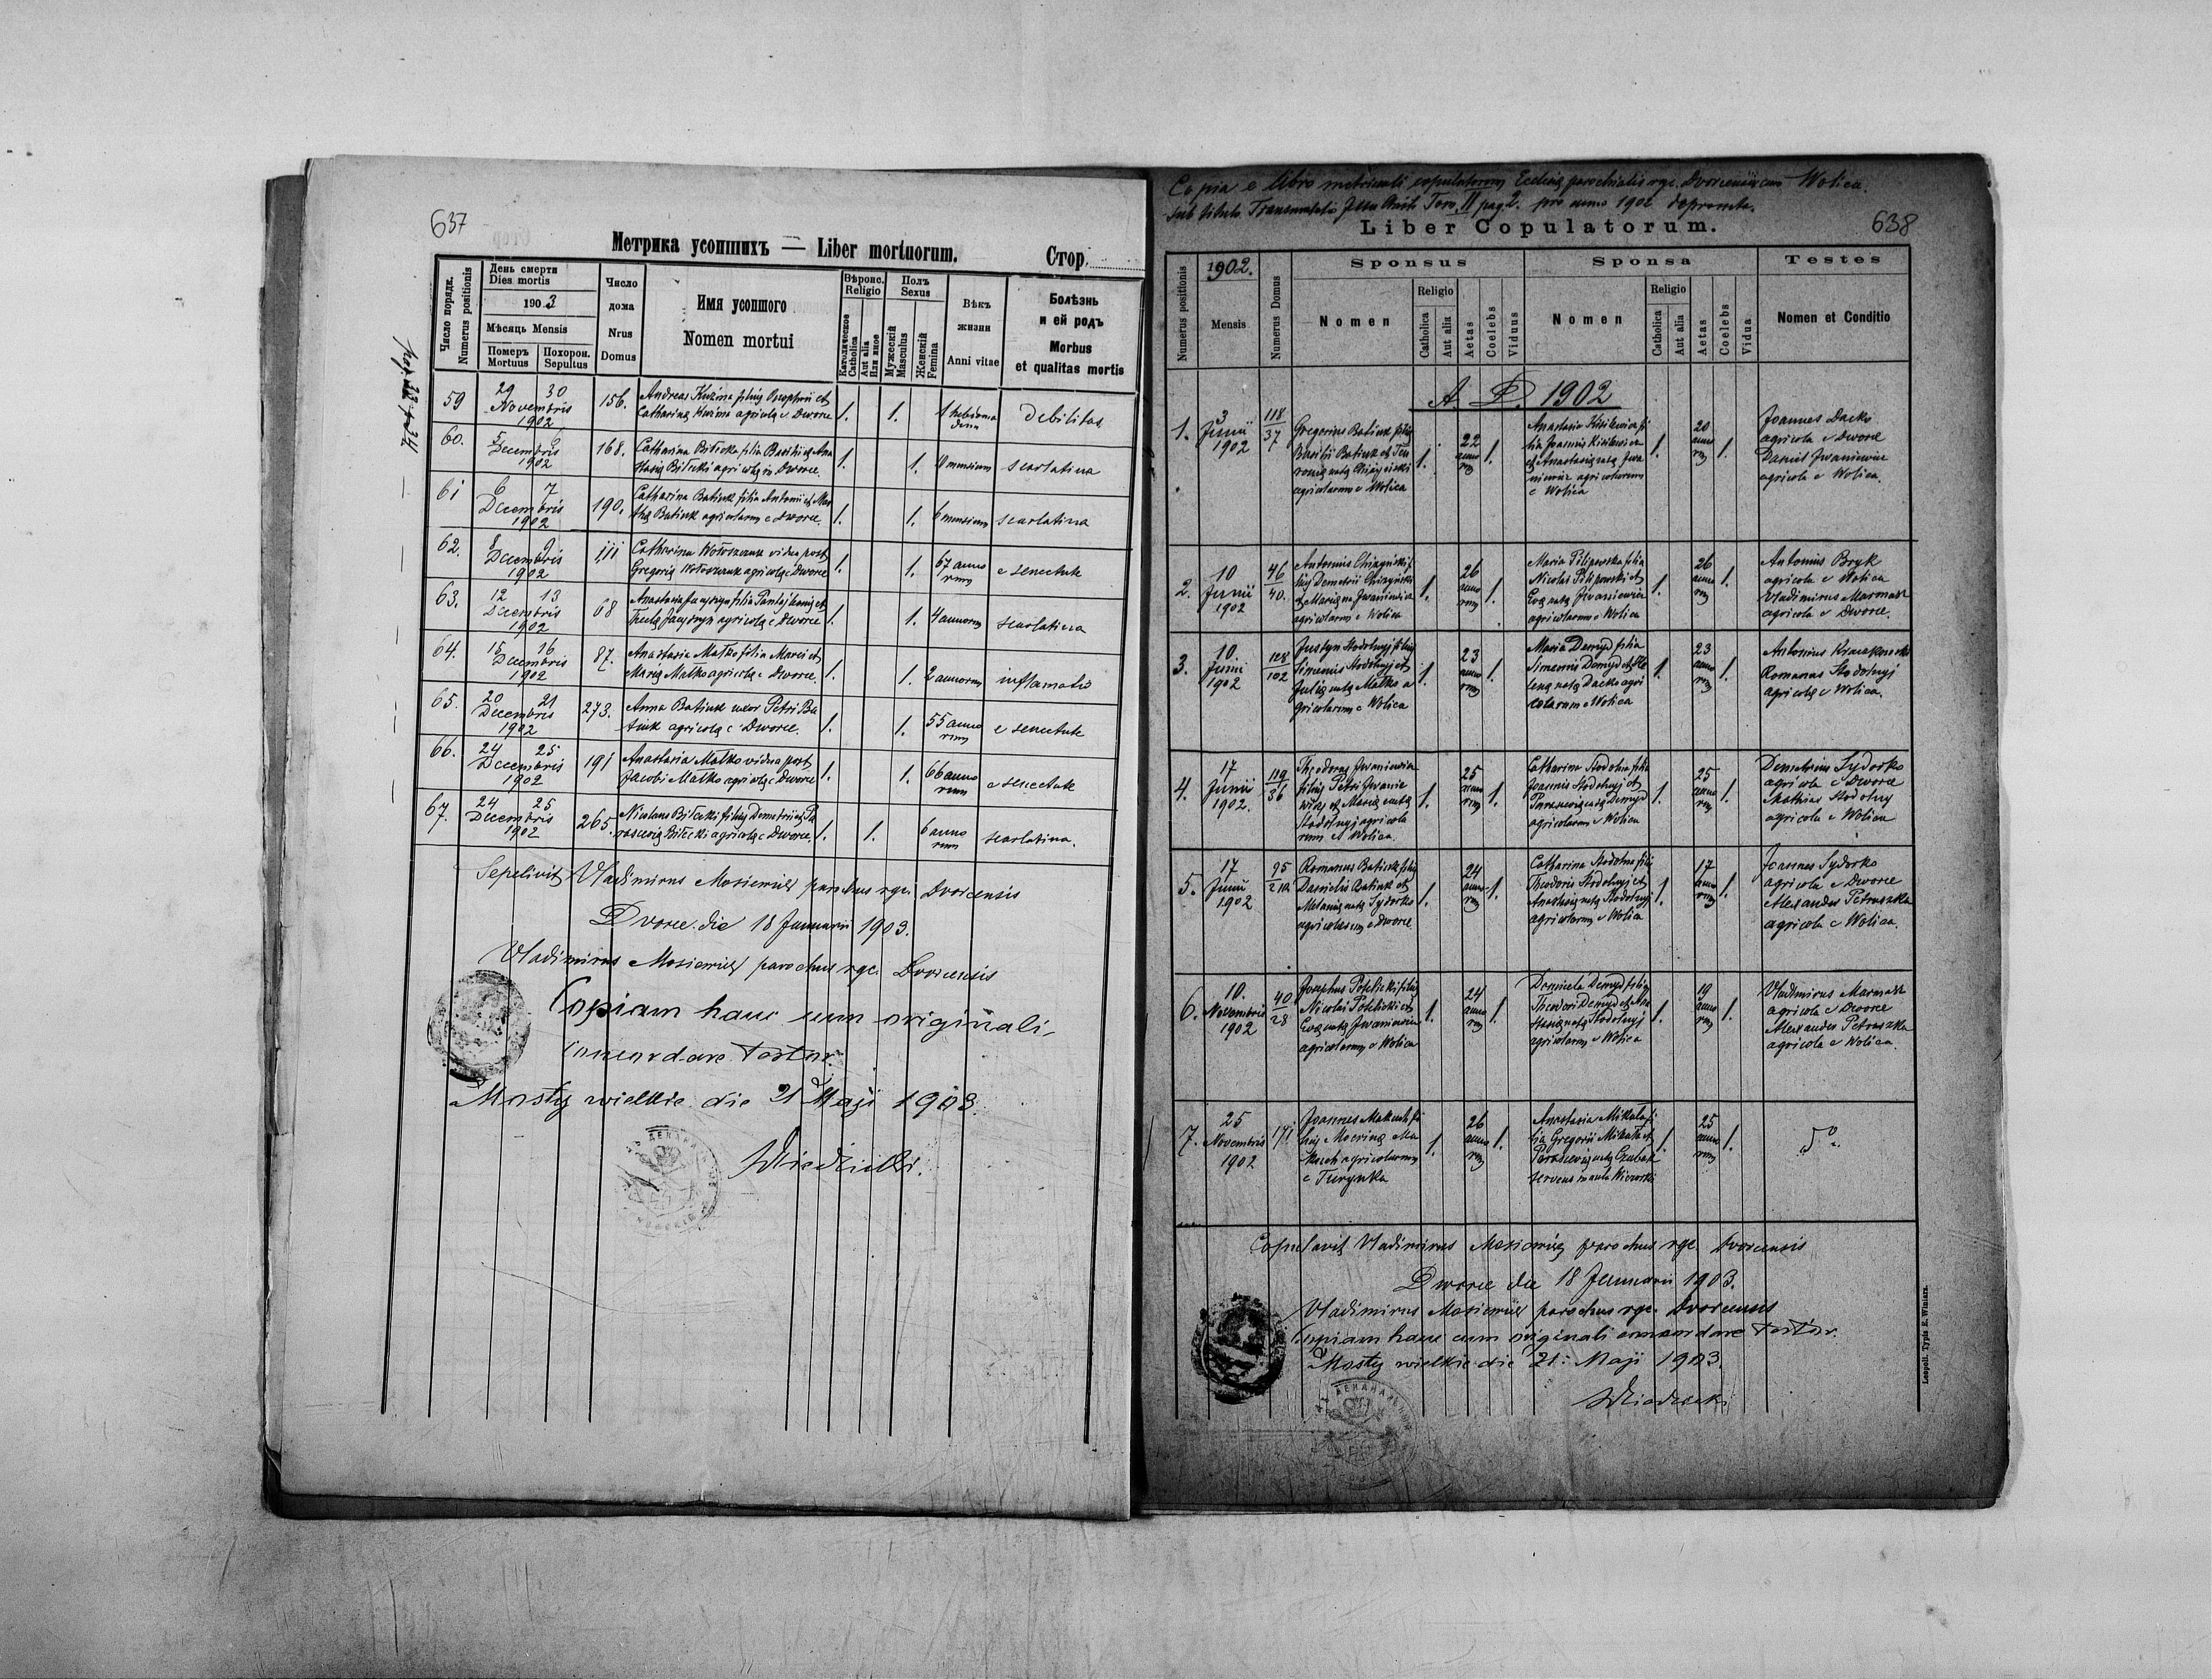 637
Метрика усопшихъ — Liber mortuorum.
Стор.
Число порядк.
Numerus positionis
День смерти
Dies mortis
1903
Мѣсяць Mensis
Померъ
Mortuus
Похорон.
Sepultus
Число
дома
Nrus
Domus
Имя усопшого
Nomen mortui
Вѣроис.
Religio
Католическое
Catholica
Aut alia
Или иное
Полъ
Sexus
Мужескій
Masculus
Женскій
Femina
Вѣкъ
жизни
Anni vitae
Болѣзнь
и ей родъ
Morbus
et qualitas mortis
59
29 30
Novembris
1902
156.
Andreas Kuzma filius Onuphrii et
Catharinæ Kuzma agricolæ e Dworce
1.
1.
1 hebdoma
debilitas
60.
5 6
Decembris
1902
168.
Catharina Bilecka filia Basilii et Ana
stasiæ Bilecki agricolæ in Dworce
1.
1.
mensium
scarlatina
61
6 7
Decembris
1902
190.
Catharina Batiuk filia Antonii et Mar
thæ Batiuk agricolarum e Dworce.
1.
1.
6 mensium
scarlatina
62.
8 9
Decembris
1902
111
Catharina Wołoszczuk vidua post
Gregorium Wołoszczuk agricolæ e Dworce
1.
1.
67 anno
rum
e senectute
63.
12 13
Decembris
1902
68
Anastasia filia Pantalejmonis et
Theclæ agricolæ e Dworce
1.
1.
4 annorum
scarlatina
64.
15 16
Decembris
1902
87.
Anastasia Matko filia Marci et
Mariæ Matko agricolæ e Dworce.
1.
1.
2 annorum
inflamatio
65.
20 21
Decembris
1902
273.
Anna Batiuk uxor Petri Ba
tiuk agricolæ e Dworce.
1.
1.
55 anno
rum
e senectute
66.
24 25
Decembris
1902
191
Anastasia Matko vidua post
Jacobi Matko agricolæ e Dworce
1.
1.
66 anno
rum
e senectute
67.
24 25
Decembris
1902
265.
Nicolaus Bilecki filius Demetrii et Pa
rasceviæ Bilecki agricolæ e Dworce.
1.
1.
6 anno
rum
scarlatina.
Sepelivit Vladimirus Mosiewicz parochus rgc. Dvorcensis
Dworce die 18 Januarii 1903.
Vladimirus Mosiewicz parochus rgc. Dvorcensis
Copiam hanc cum originali
concordare testor.
Mosty wielkie die 21 Maji 1903.
638
Copia e libro metricali copulatorum Ecclesiæ parochialis rgc. Dvorcensis cum Wolica
sub titulo Jesu Christi Tom. II pag. 2. pro anno 1902 deprompta.
Liber Copulatorum.
Numerus positionis
1902.
Mensis
Numerus Domus
Sponsus
Nomen
Religio
Catholica
Aut alia
Aetas
Coelebs
Viduus
Sponsa
Nomen
Religio
Catholica
Aut alia
Aetas
Coelebs
Vidua
Testes
Nomen et Conditio
A. D. 1902
1.
3
Junii
1902
118
37
Gregorius Batiuk filius
Basilii Batiuk et
agricolarum e Wolica
1.
22
anno
rum
1.
Anastasia Kisilewicz fi
lia Joannis Kisilewicz
et Anastasiæ natæ Iwa
niewicz agricolarum
e Wolica
1.
20
anno
rum
1.
Joannes Dacko
agricola e Dworce
Daniel Iwaniewicz
agricola e Wolica.
2.
10
Junii
1902
46
40.
Antonius fi
lius Demetrii
et Mariæ na. Iwaniewicz
agricolarum e Wolica
1.
26
anno
rum
1.
Maria Pilipowska filia
Nicolai Pilipowski et
Evæ natæ Iwaniewicz
agricolarum e Wolica
1.
26
anno
rum
1.
Antonius Bryk
agricola e Wolica
Vladimirus Marmasz
agricola e Dworce.
3.
10
Junii
1902
128
102
Justyn Stodolnyj filius
Simeonis Stodolnyj et
Juliæ natæ Matko a
gricolarum e Wolica
1.
23
anno
rum
1.
Maria Demyd filia
Simeonis Demyd et He
lenæ natæ Dacko agri
colarum e Wolica
1.
23
anno
rum
1.
Antonius
Romanus Stodolnyj
agricolæ e Wolica.
4.
17
Junii
1902.
119
36
Theodorus Iwaniewicz
filius Petri Iwanie
wicz et Mariæ natæ
Stodolnyj agricola
rum e Wolica.
1.
25
anno
rum
1.
Catharina Stodolna filia
Joannis Stodolnyj et
Parasceviæ natæ Demyd
agricolarum e Wolica
1.
25
anno
rum
1.
Demetrius Sydorko
agricola e Dworce
Mathias Stodolny
agricola e Wolica
5.
17
Junii
1902
95
212
Romanus Batiuk filius
Danielis Batiuk et
Melaniæ natæ Sydorko
agricolarum e Dworce
1.
24
anno
rum
1.
Catharina Stodolna fili
Theodoris Stodolnyj et
Anastasiæ natæ Stodolnyj
agricolarum e Wolica
1.
17
anno
rum
1.
Joannes Sydorko
agricola e Dworce
Alexander Petruszka
agricola e Wolica.
6.
10.
Novembris
1902
40
28
Josephus filius
Nicolai et
Evæ natæ Iwaniewicz
agricolarum e Wolica
1.
24
anno
rum
1.
Demyd filia
Theodori Demyd et Ana
stasiæ natæ Stodolnyj
agricolarum e Wolica
1.
19
anno
rum
1.
Vladimirus Marmasz
agricola e Dworce
Alexander Petruszka
agricola e Wolica.
7.
25
Novembris
1902
171
Joannes Makuch fi
lius Ma
kuch agricolarum
e Turynka
1.
26
anno
rum
1.
Anastasia Mikała fi
lia Gregorii Mikała et
Parasceviæ natæ
1.
25
anno
rum
1.
Copulavit Vladimirus Mosiewicz parochus rgc. Dvorcensis
Dworce die 18 Januarii 1903.
Vladimirus Mosiewicz parochus rgc. Dvorcensis
Copiam hanc cum originali concordare testor.
Mosty wielkie die 21. Maji 1903.
Leopoli. Typis E. Winiarz.